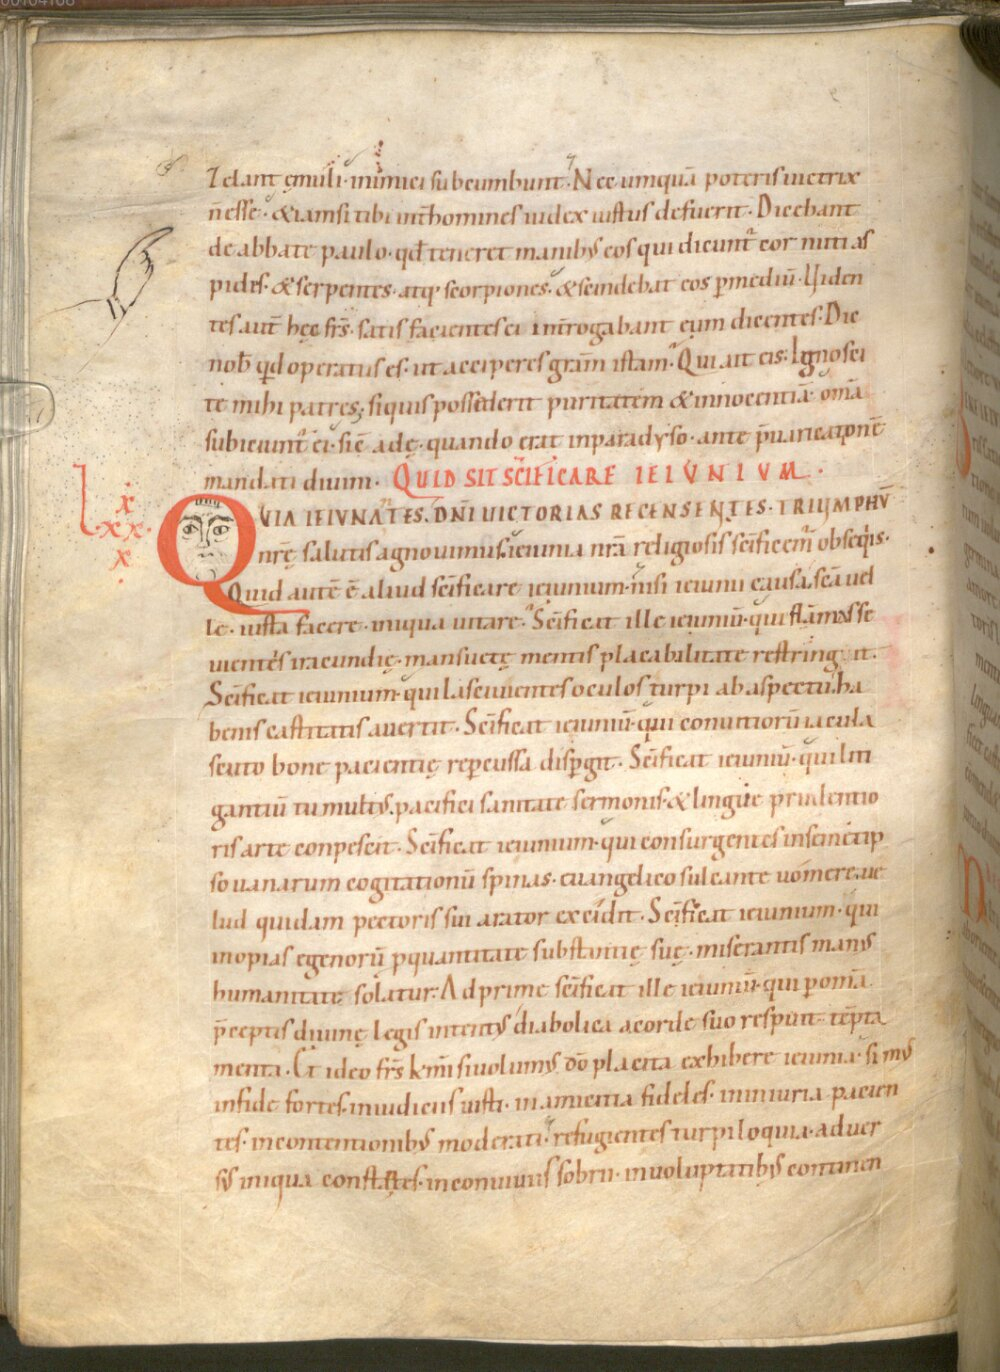 Zelant ęmuli · inimici subcumbunt · Nec umquā poteris uictrix
ñ esse · & iam si tibi inť homines iudex iustus defuerit · Dicebant
de abbate paulo · qđ teneret manibꝰ eos qui dicunť cornutі aspides
pides · & serpentes · atq; scorpiones · & scindebat eos ꝑ mediū · Uiden
tes aut̄ hęc fr̄s · satis facientes ei int̄rogabant eum dicentes · Dic
nob̄ qd operatus es · ut acciperes gr̄am istam · Qui ait eis · Ignosci
te mihi patres; si quis possederit puritatem & innocentiā · om̄a
subiciunť ei · sic̄ adę · quando erat in paradyso · ante p̄uaricationē
mandati diuini · QUID SIT SC̄IFICARE IEIUNIUM ·
lxxxxx
QUIA IEIUNANTES · DN̄I UICTORIAS RECENSENTES · TRIUMPHŪ
nr̄ę salutis agnouimus · ieiunia nr̄a religiosis sc̄ificem̄ obseqiis ·
Quid autē ē aliud sc̄ificare ieiunium · nisi ieiunii causa · sc̄a uel
le · iusta facere · iniqua uitare · Sc̄ificat ille ieiuniū · qui flāmas se
uientes iracundię · mansuetę mentis placabilitate restringuit ·
Sc̄ificat ieiunium · qui lasciuientes oculos turpi ab aspectu · ha
benis castitatis auertit · Sc̄ificat ieiuniū · qui conuitiorū iacula
scuto bone pacientię repercussa disꝑgit · Sc̄ificat ieiuniū · qui liti
gantiū tumultꝰ · pacifici sanitate sermonis · & lingue prudentio
ris arte conpescit · Sc̄ificat ieiunium · qui consurgentes in sui m̄tis ip
so uanarum cogitationū spinas · euangelico sulcante uomere · ue
lud quidam pectoris sui arator excidit · Sc̄ificat ieiunium · qui
inopias egenorū ꝑ quantitate substantię suę · miserantis manꝰ
humanitate solatur · Ad prime sc̄ificat ille ieiuniū · qui ꝑ om̄a
p̄ceptis diuinę legis intentꝰ diabolica a corde suo respuit tēpta
menta · Et ideo fr̄s km̄i si uolumꝰ dō placita exhibere ieiunia · simꝰ
in fide fortes · in iudiciis iusti · in amicitia fideles · in iniuria pacien
tes · in contentionibꝰ moderati · refugientes turpiloquia · aduer
sꝰ iniqua constantes · in conuiuiis sobrii · in uoluptatibꝰ continen